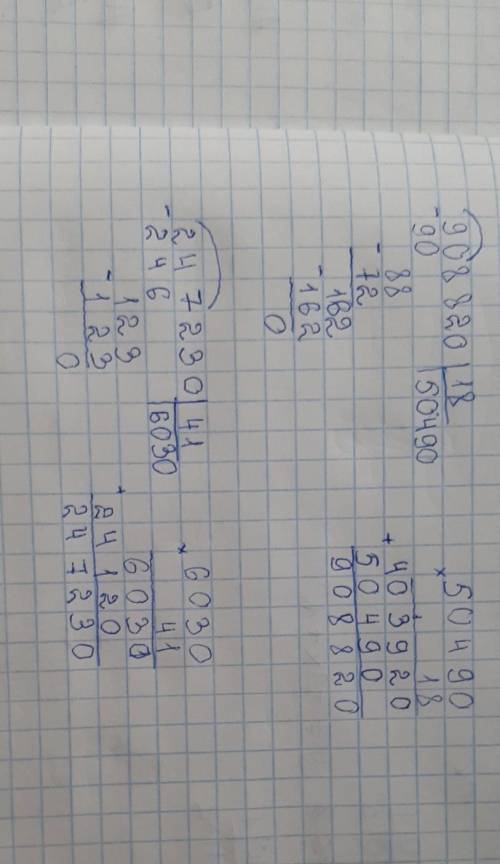 908820 | 18
- 90 | 50490
88
- 72
162
- 162
0
× 50490
18
+ 403920
50490
908820
247230 | 41
- 246 | 6030
123
- 123
0
× 6030
41
+ 6030
24120
247230